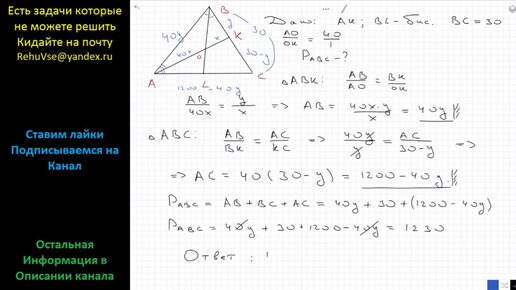 Есть задачи которые
не можете решить
Кидайте на почту
RehuVse@yandex.ru
Ставим лайки
Подписываемся на
Канал
Остальная
Информация в
Описании канала
B
y
40y
30
K
x
40x
O
30-y
A
L
C
1200-40y
Дано: AK; BL-бис. BC=30
AO/OK = 40/1
P_ABC-?
△ABK: AB/AO = BK/OK
AB/40x = y/x => AB = 40x·y/x = 40y
△ABC: AB/BK = AC/KC => 40y/y = AC/30-y =>
=> AC = 40(30-y) = 1200-40y
P_ABC = AB + BC + AC = 40y + 30 + (1200-40y)
P_ABC = 40y + 30 + 1200 - 40y = 1230
Ответ: